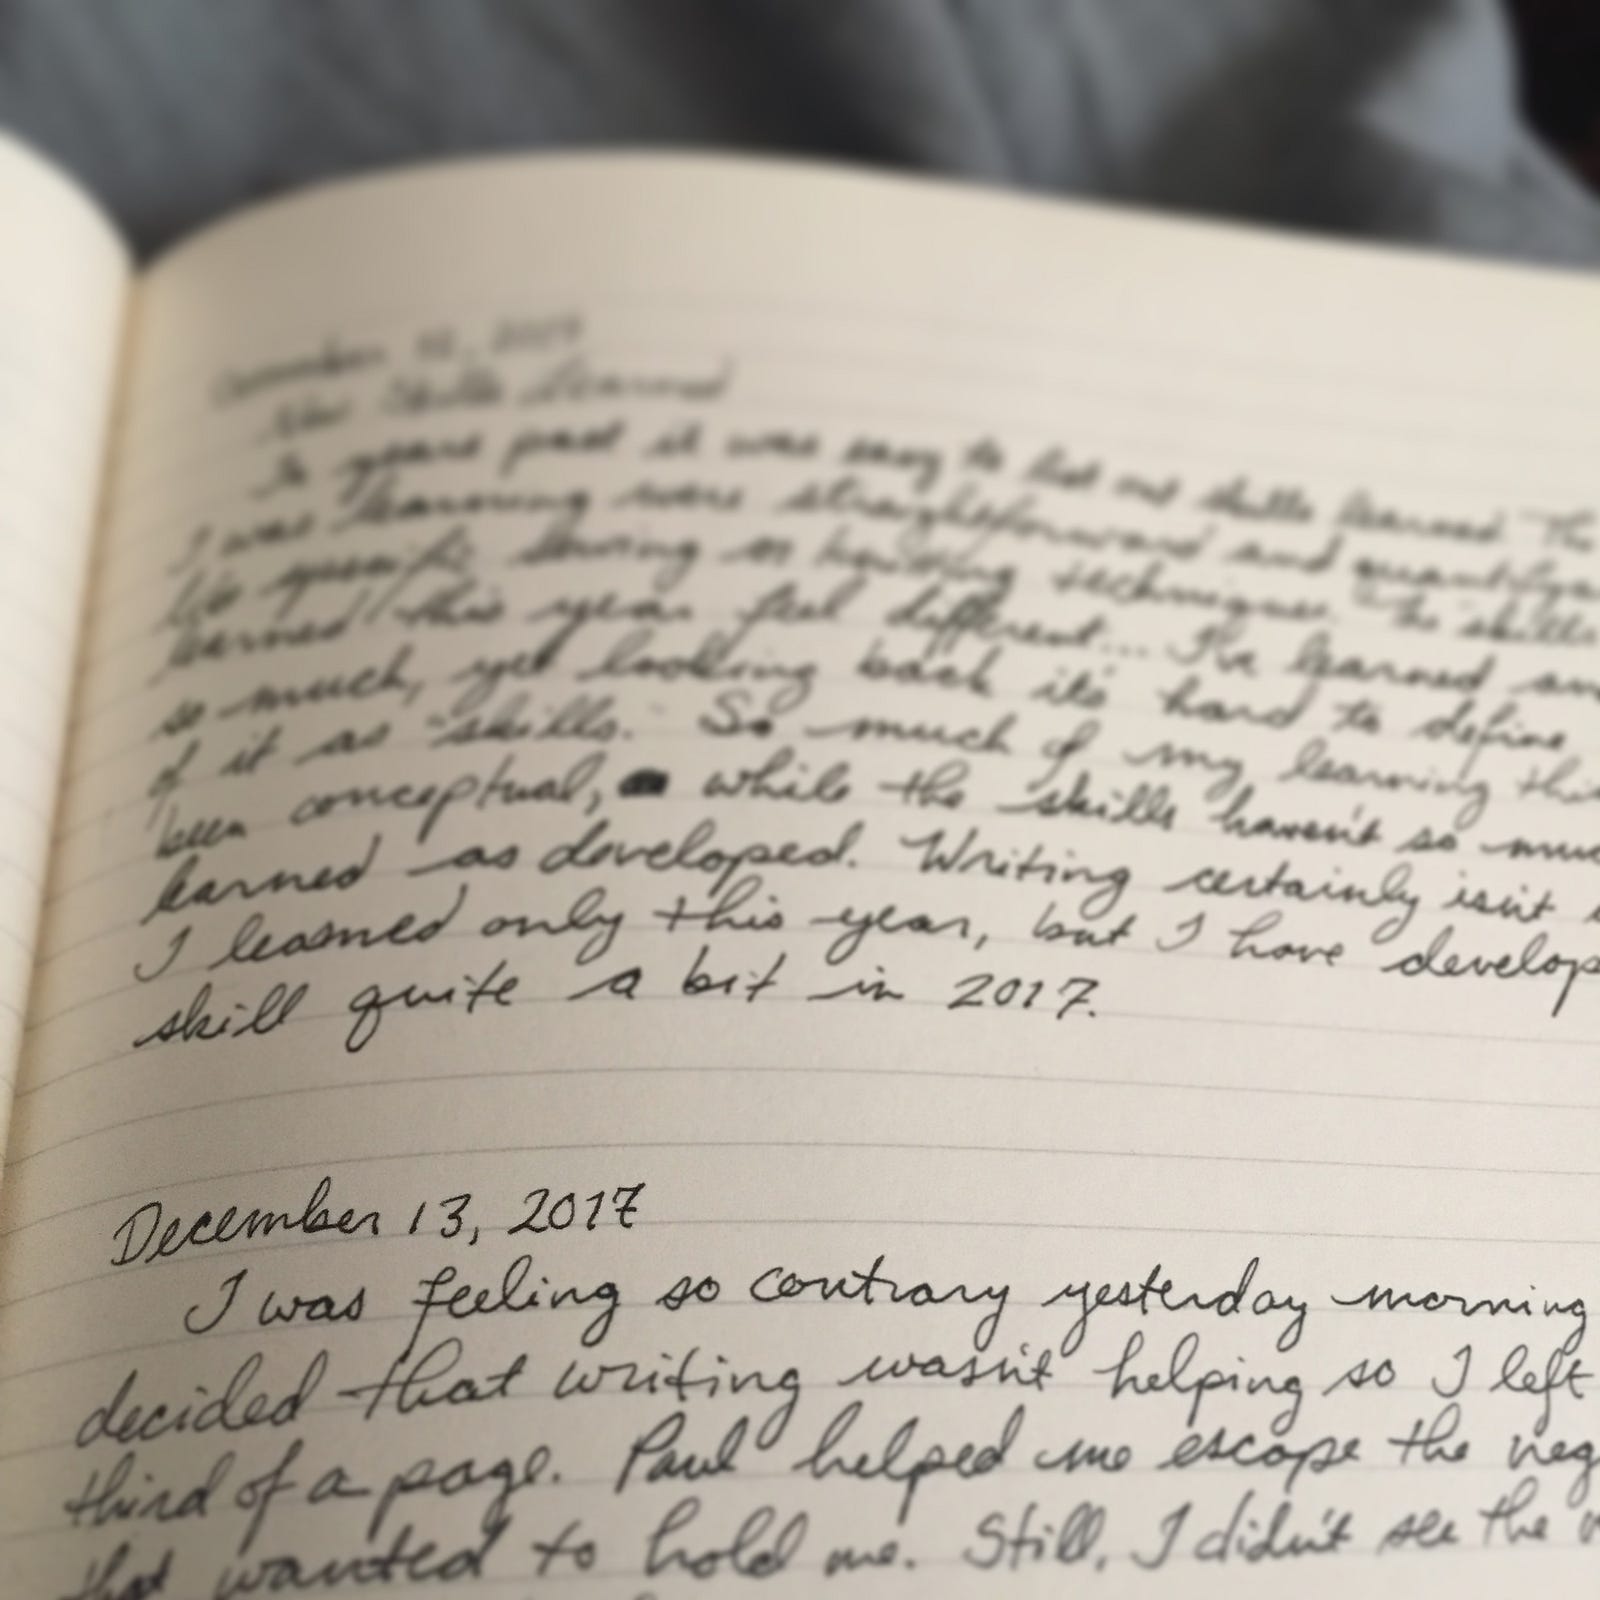 December 12, 2017
New Skills Learned
In years past it was easy to list out skills learned. The
I was learning were straightforward and
like specific sewing or knitting techniques. The skills
learned this year feel different... I've learned
so much, yet looking back it's hard to define
of it as "skills." So much of my learning this
been conceptual, while the skills haven't so much
learned as developed. Writing certainly isn't
I learned only this year, but I have
skill quite a bit in 2017.
December 13, 2017
I was feeling so contrary yesterday morning
decided that writing wasn't helping so I left
third of a page. Paul helped me escape the
that wanted to hold me. Still, I didn't see the